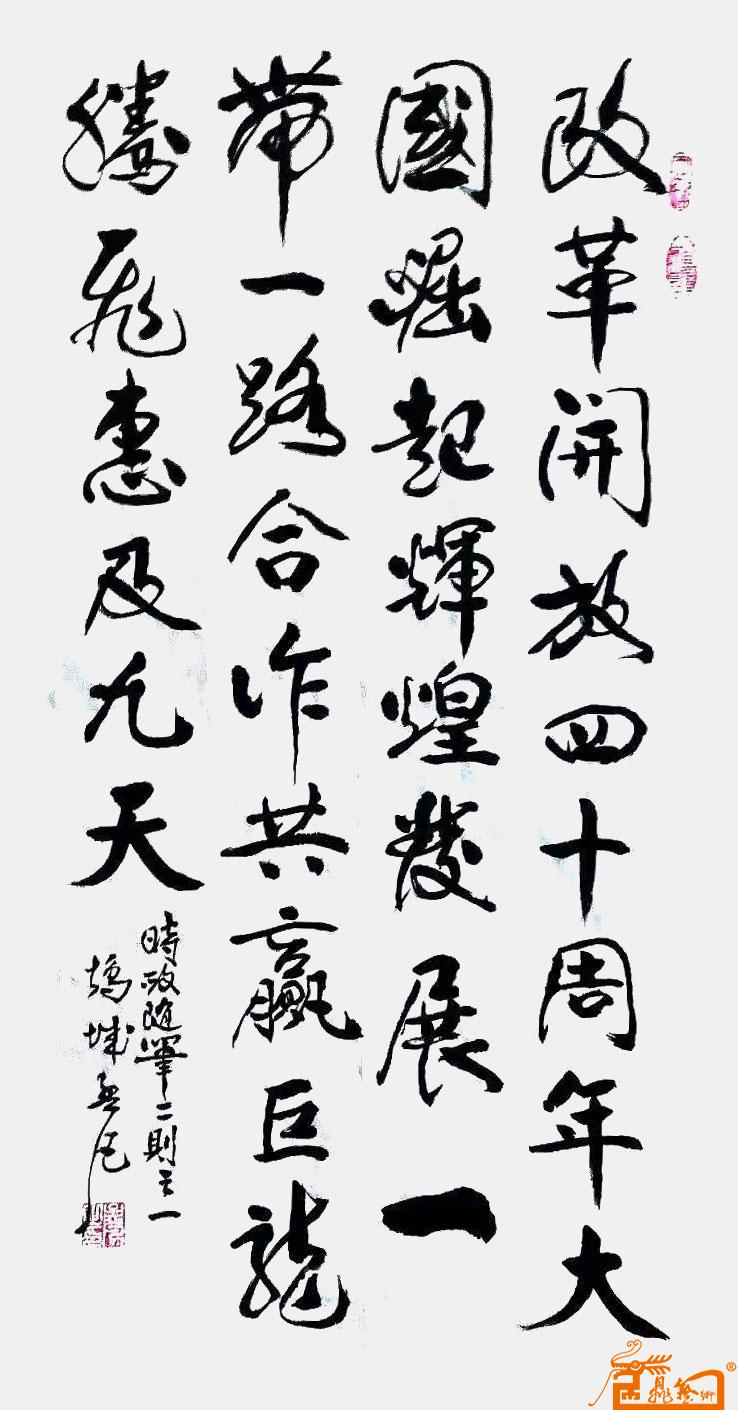 改革開放四十周年大
國崛起輝煌發展一
帶一路合作共赢巨龍
騰飛惠及九天
時政随筆二則之一